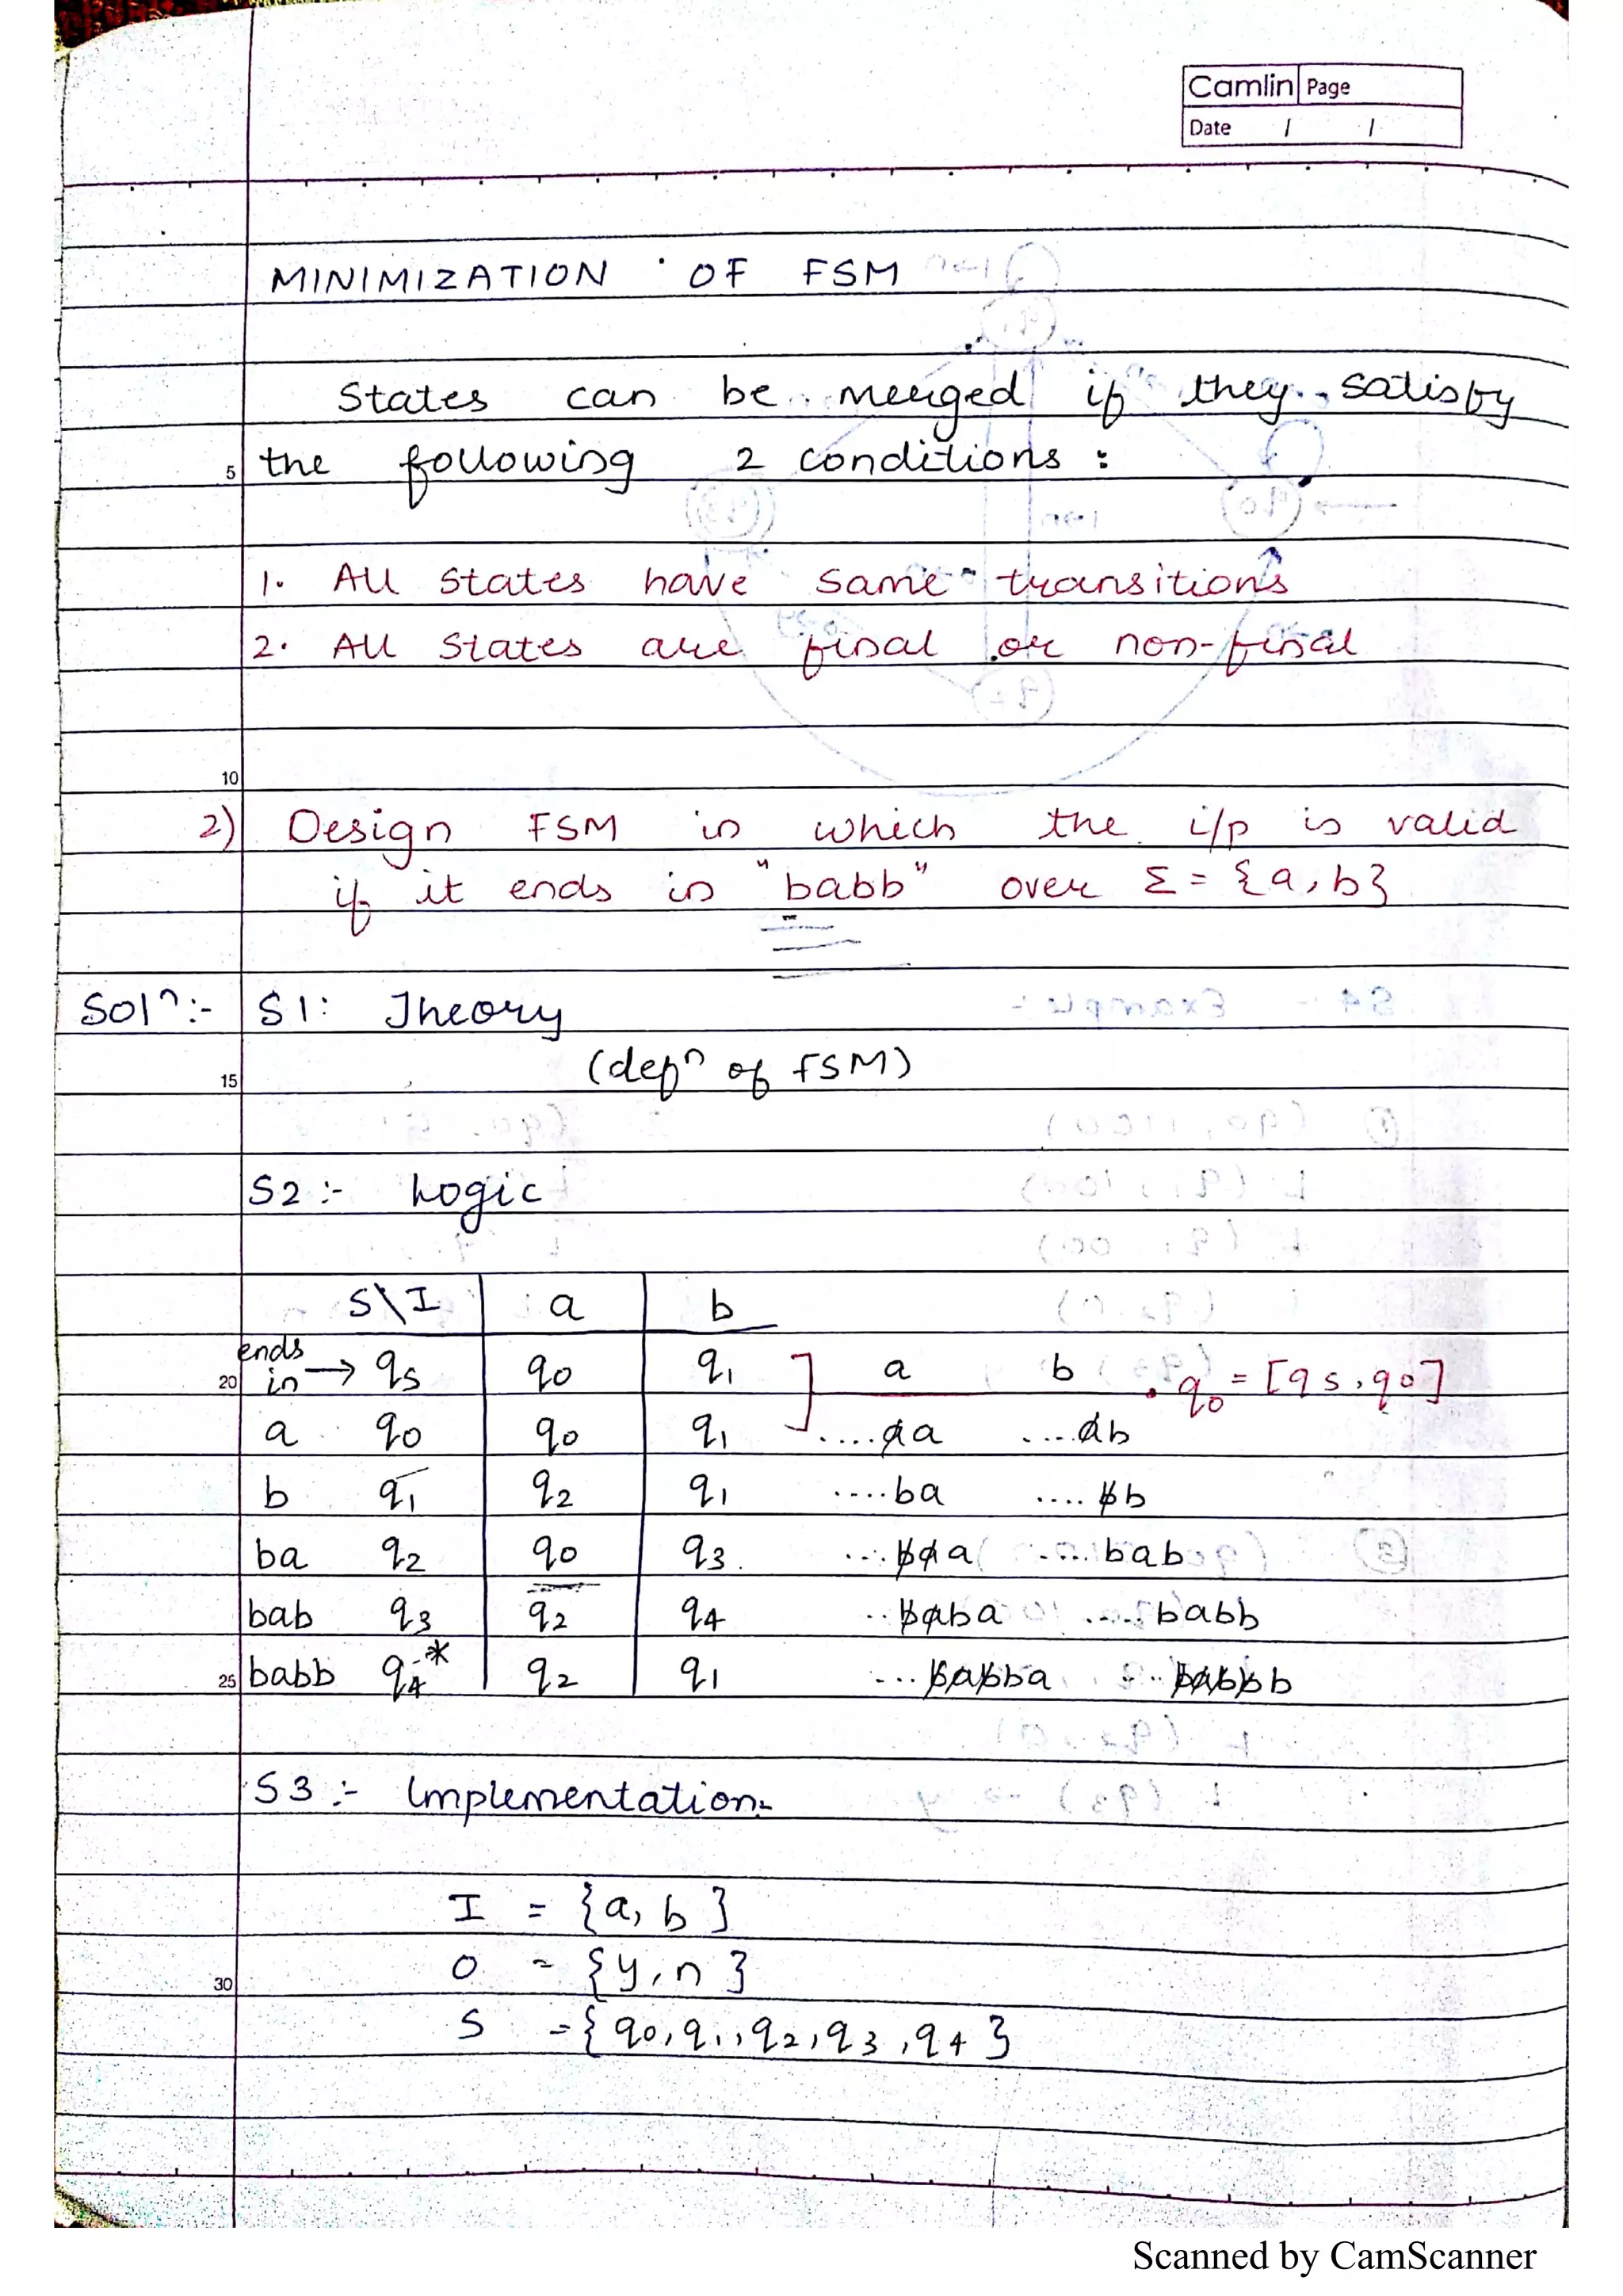 Camlin Page
Date / /
MINIMIZATION OF FSM
States can be merged if they satisfy
5 the following 2 conditions :
1. All States have same transitions
2. All States are final or non-final
10
2) Design FSM in which the i/p is valid
if it ends in "babb" over Σ = {a, b}
Solⁿ:- S1: Theory
(defⁿ of FSM)
15
S2 :- Logic
S\I a b
20 ends in → qs q0 q1 a b q0 = [qs, q0]
a q0 q0 q1 ....aa ....ab
b q1 q2 q1 ....ba ....bb
ba q2 q0 q3 ....baa ....bab
bab q3 q2 q4 ..baba .....babb
25 babb q4* q2 q1 ...babba ...babbb
S3 :- Implementation
I = {a, b}
30 O = {y, n}
S = {q0, q1, q2, q3, q4}
Scanned by CamScanner